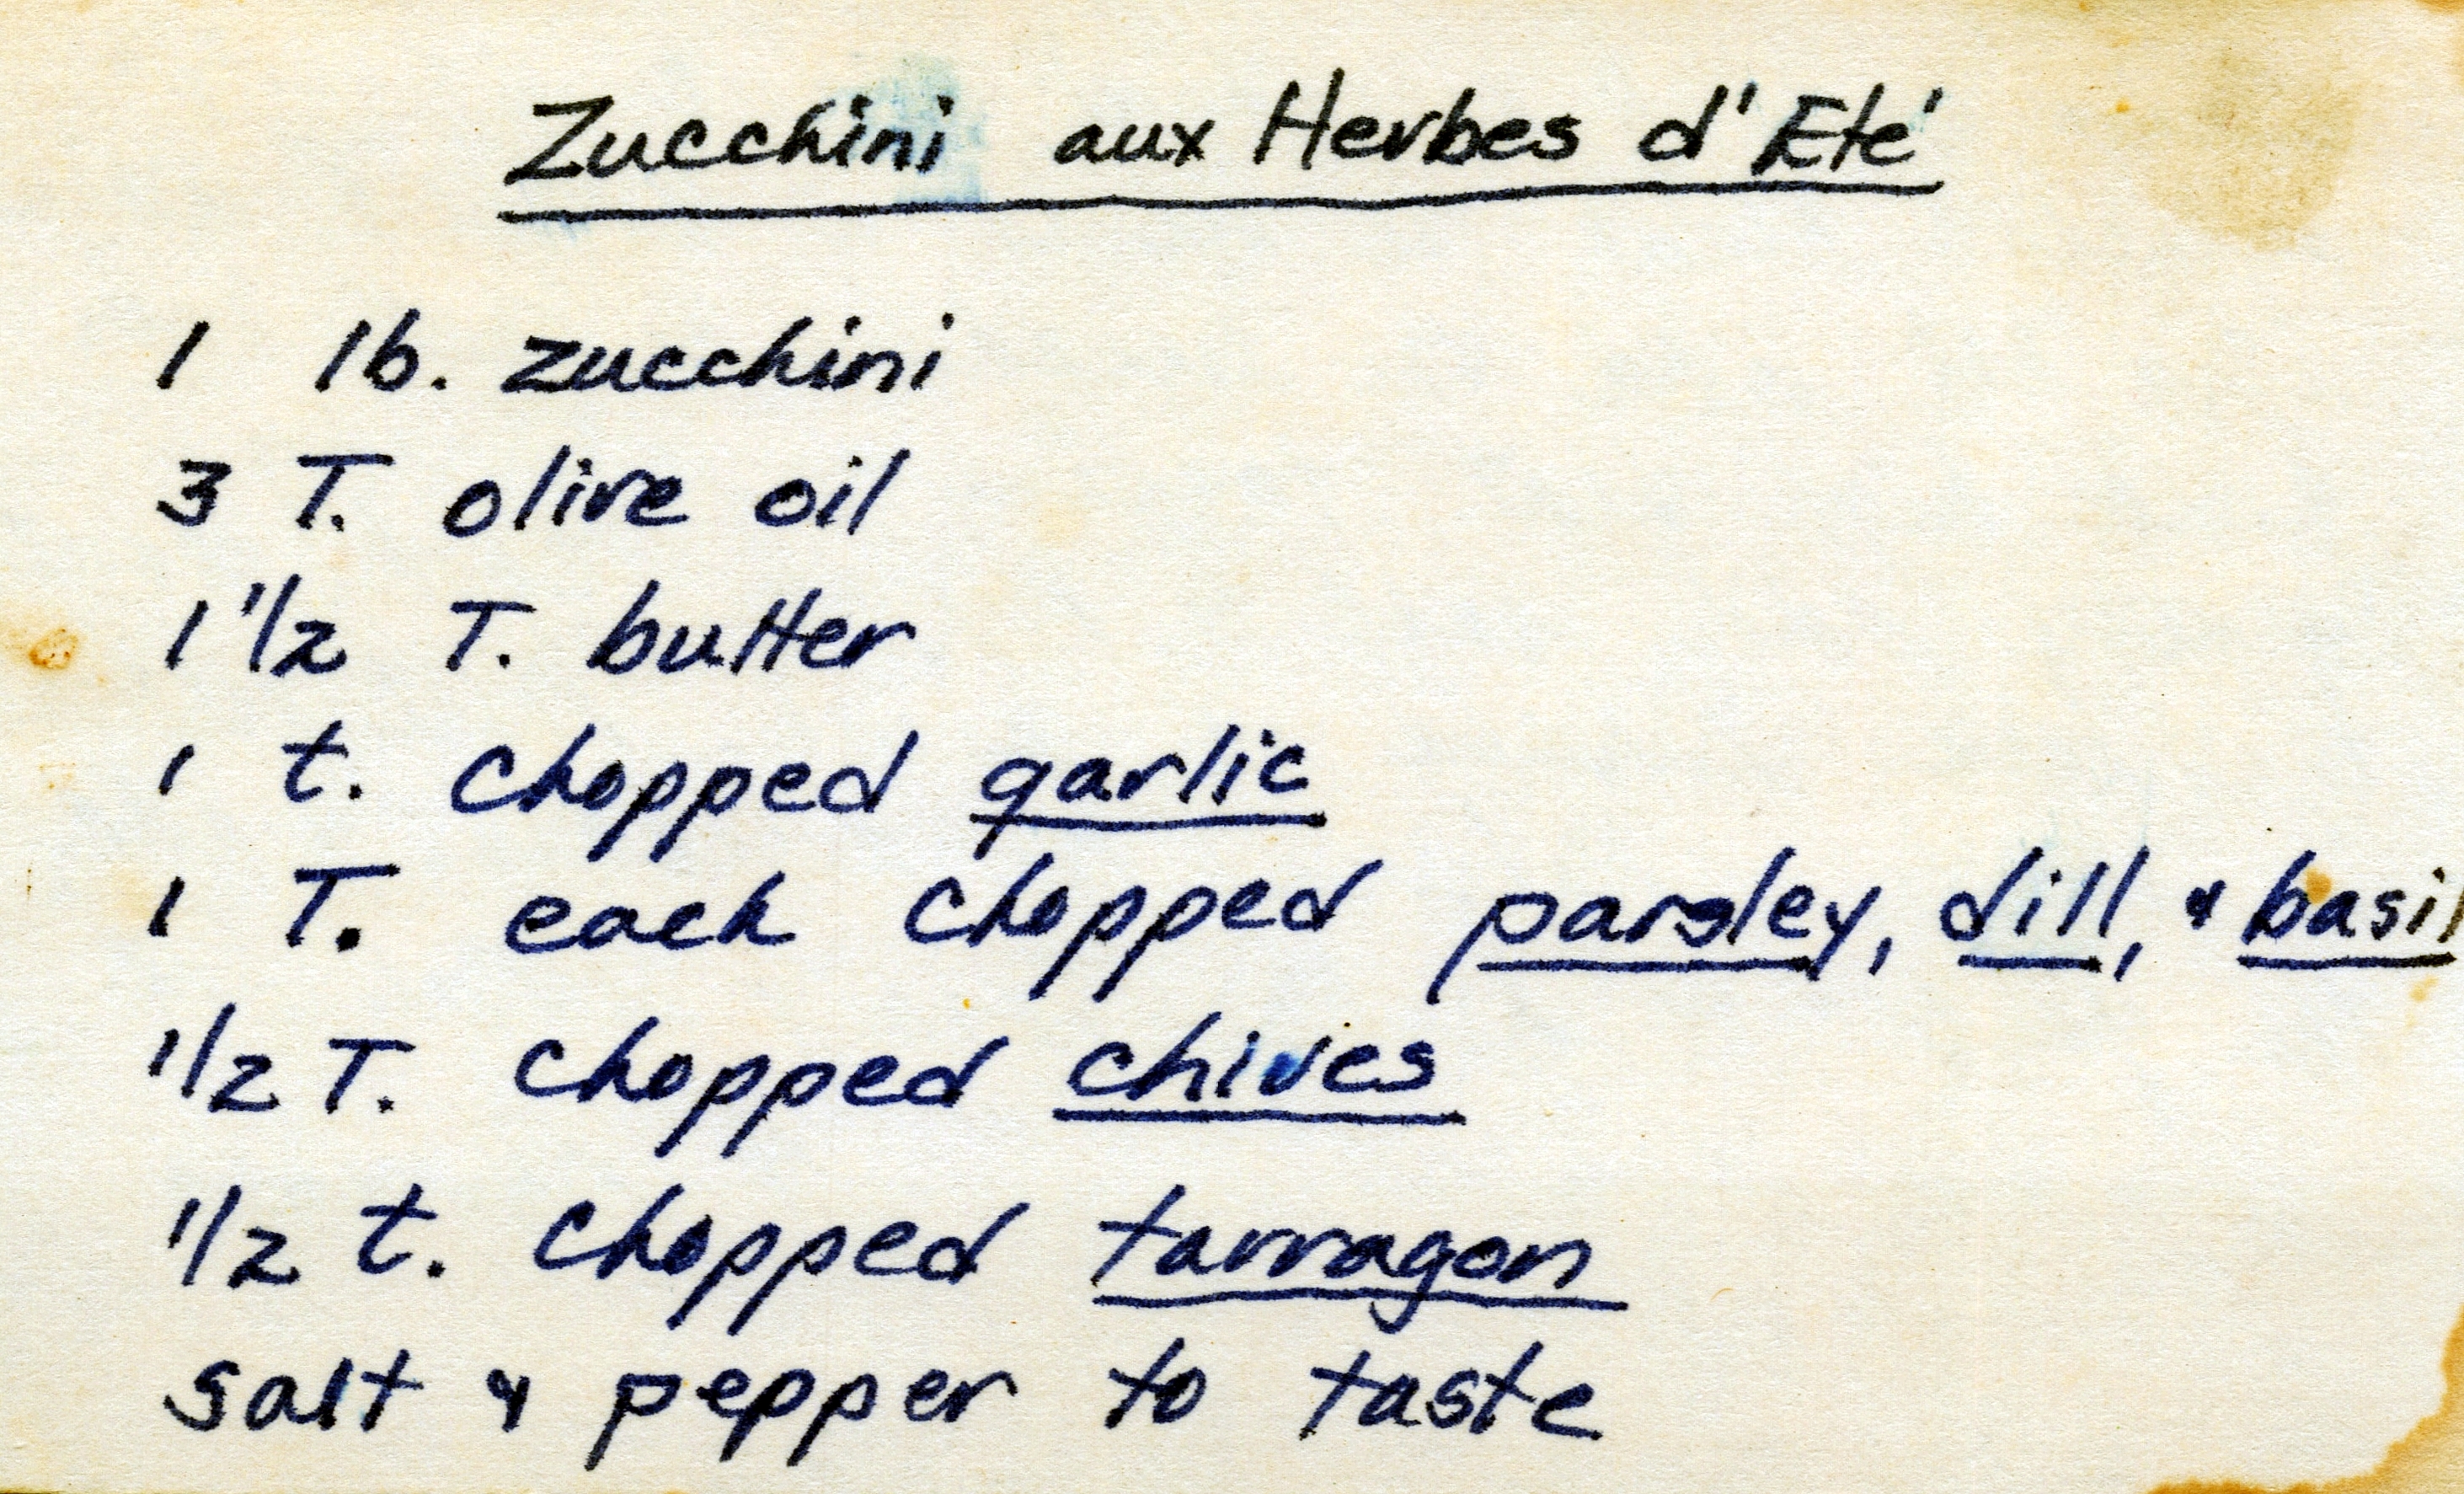 Zucchini aux Herbes d'Eté
1 lb. zucchini
3 T. olive oil
1 1/2 T. butter
1 t. chopped garlic
1 T. each chopped parsley, dill, & basil
1/2 T. chopped chives
1/2 t. chopped tarragon
salt & pepper to taste